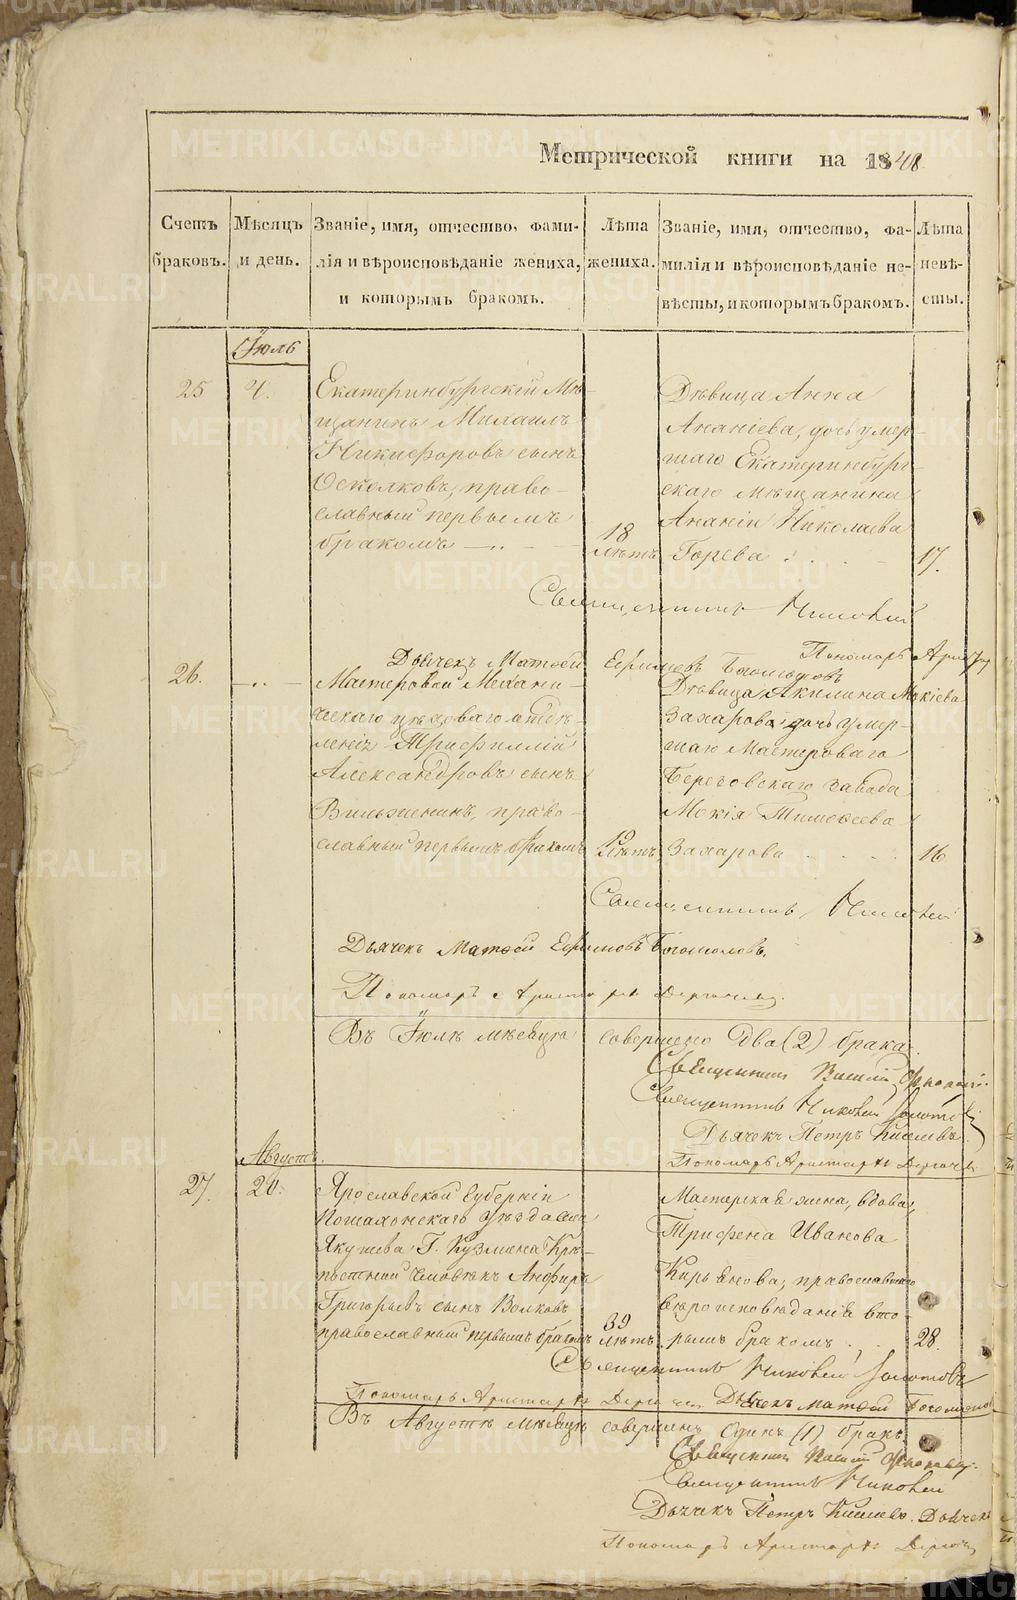 Метрической книги на 1848
Счетъ браковъ.
Мѣсяцъ и день.
Званіе, имя, отчество, фами-
лія и вѣроисповѣданіе жениха,
и которымъ бракомъ.
Лѣта жениха.
Званіе, имя, отчество, фа-
милія и вѣроисповѣданіе не-
вѣсты, и которымъ бракомъ.
Лѣта невѣ-
сты.
Іюль
25
4.
Екатеринбургскій Мѣ-
щанинъ Михаилъ
Никифоровъ сынъ
Осколковъ, право-
славный первымъ
бракомъ
18
лѣтъ
Дѣвица Анна
Ананіева, дочь умер-
шаго Екатеринбург-
скаго мѣщанина
Ананіи Николаева
Горева
17.
Священникъ Николай
Дьячекъ Матѳей Ефимовъ Богомоловъ
Пономарь Аристар
26.
Мастеровой Механи-
ческаго цѣховаго отдѣ-
ленія Трифиллій
Александровъ сынъ
право-
славный первымъ бракомъ
19
лѣтъ
Дѣвица Акилина Мокіева
Захарова дочь умер-
шаго Мастероваго
Березовскаго завода
Мокія Тимоѳеева
Захарова
16
Священникъ Николай
Дьячекъ Матѳей Ефимовъ Богомоловъ.
Пономарь Аристархъ
Въ Іюлѣ мѣсяцѣ совершено два (2) брака.
Священникъ Василій
Священникъ Николай Золотовъ
Дьячекъ Петръ Киселевъ
Пономарь Аристархъ
Августъ.
27.
20.
Ярославской Губерніи
Пошехонскаго уѣзда
Г. Кузмина Крѣ-
постный человѣкъ Анфиръ
Григорьевъ сынъ Волковъ
православный первымъ бракомъ
39
лѣтъ
Мастерская жена, вдова,
Трифена Иванова
Кирьянова, православнаго
вѣроисповѣданія вто-
рымъ бракомъ
28.
Священникъ Николай Золотовъ
Пономарь Аристархъ Дьячекъ Матѳей Богомолов
Въ Августѣ мѣсяцѣ совершенъ одинъ (1) бракъ.
Священникъ Василій
Священникъ Николай
Дьячекъ Петръ Киселевъ. Дьячекъ
Пономарь Аристархъ
METRIKI.GASO-URAL.RU